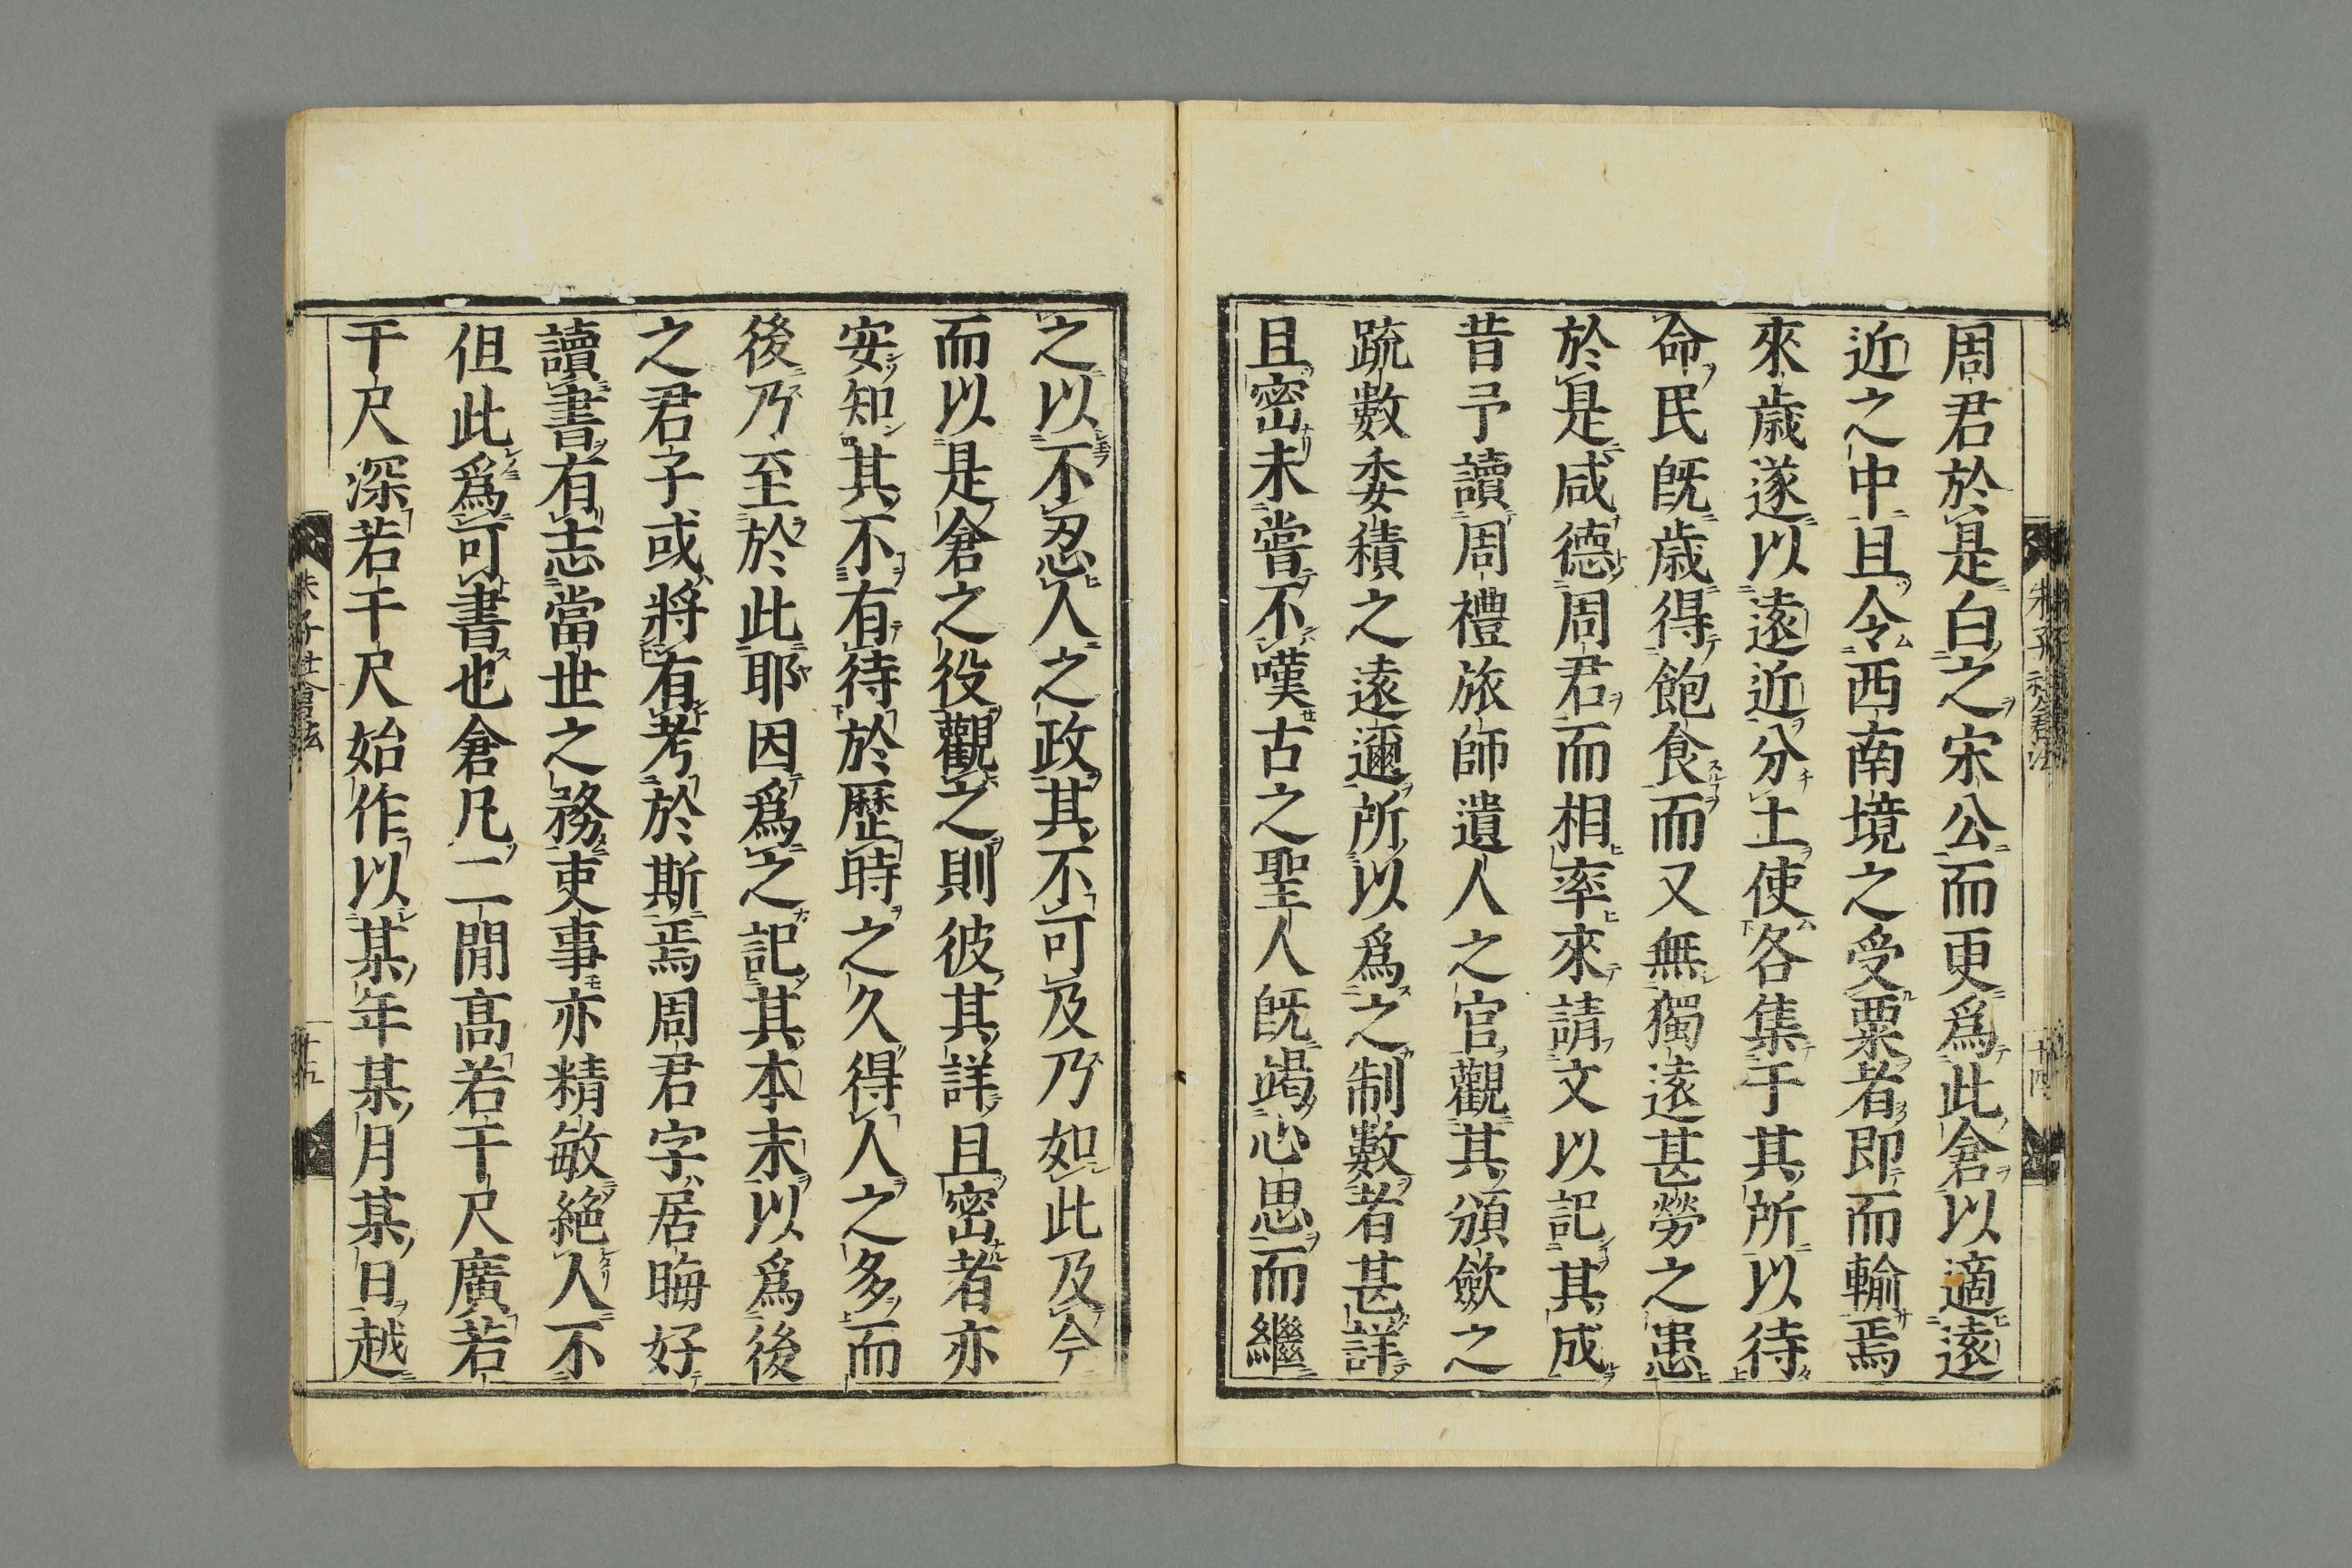 朱子社倉法
十四
周君於是白之宋公而更爲此倉以適遠
近之中且令西南境之受粟者即而輸焉
來歳遂以遠近分土使各集于其所以待
命民既歳得飽食而又無獨遠甚勞之患
於是咸德周君而相率來請文以記其成
昔予讀周禮旅師遺人之官觀其頒斂之
疏數委積之遠邇所以爲之制數者甚詳
且密未嘗不嘆古之聖人既竭心思而繼
之以不忍人之政其不可及乃如此及今
而以是倉之役觀之則彼其詳且密者亦
安知其不有待於歴時之久得人之多而
後乃至於此耶因爲之記其本末以爲後
之君子或將有考於斯焉周君字居晦好
讀書有志當世之務吏事亦精敏絶人不
但此爲可書也倉凡二間高若干尺廣若
干尺深若干尺始作以某年某月某日越
朱子社倉法
十五